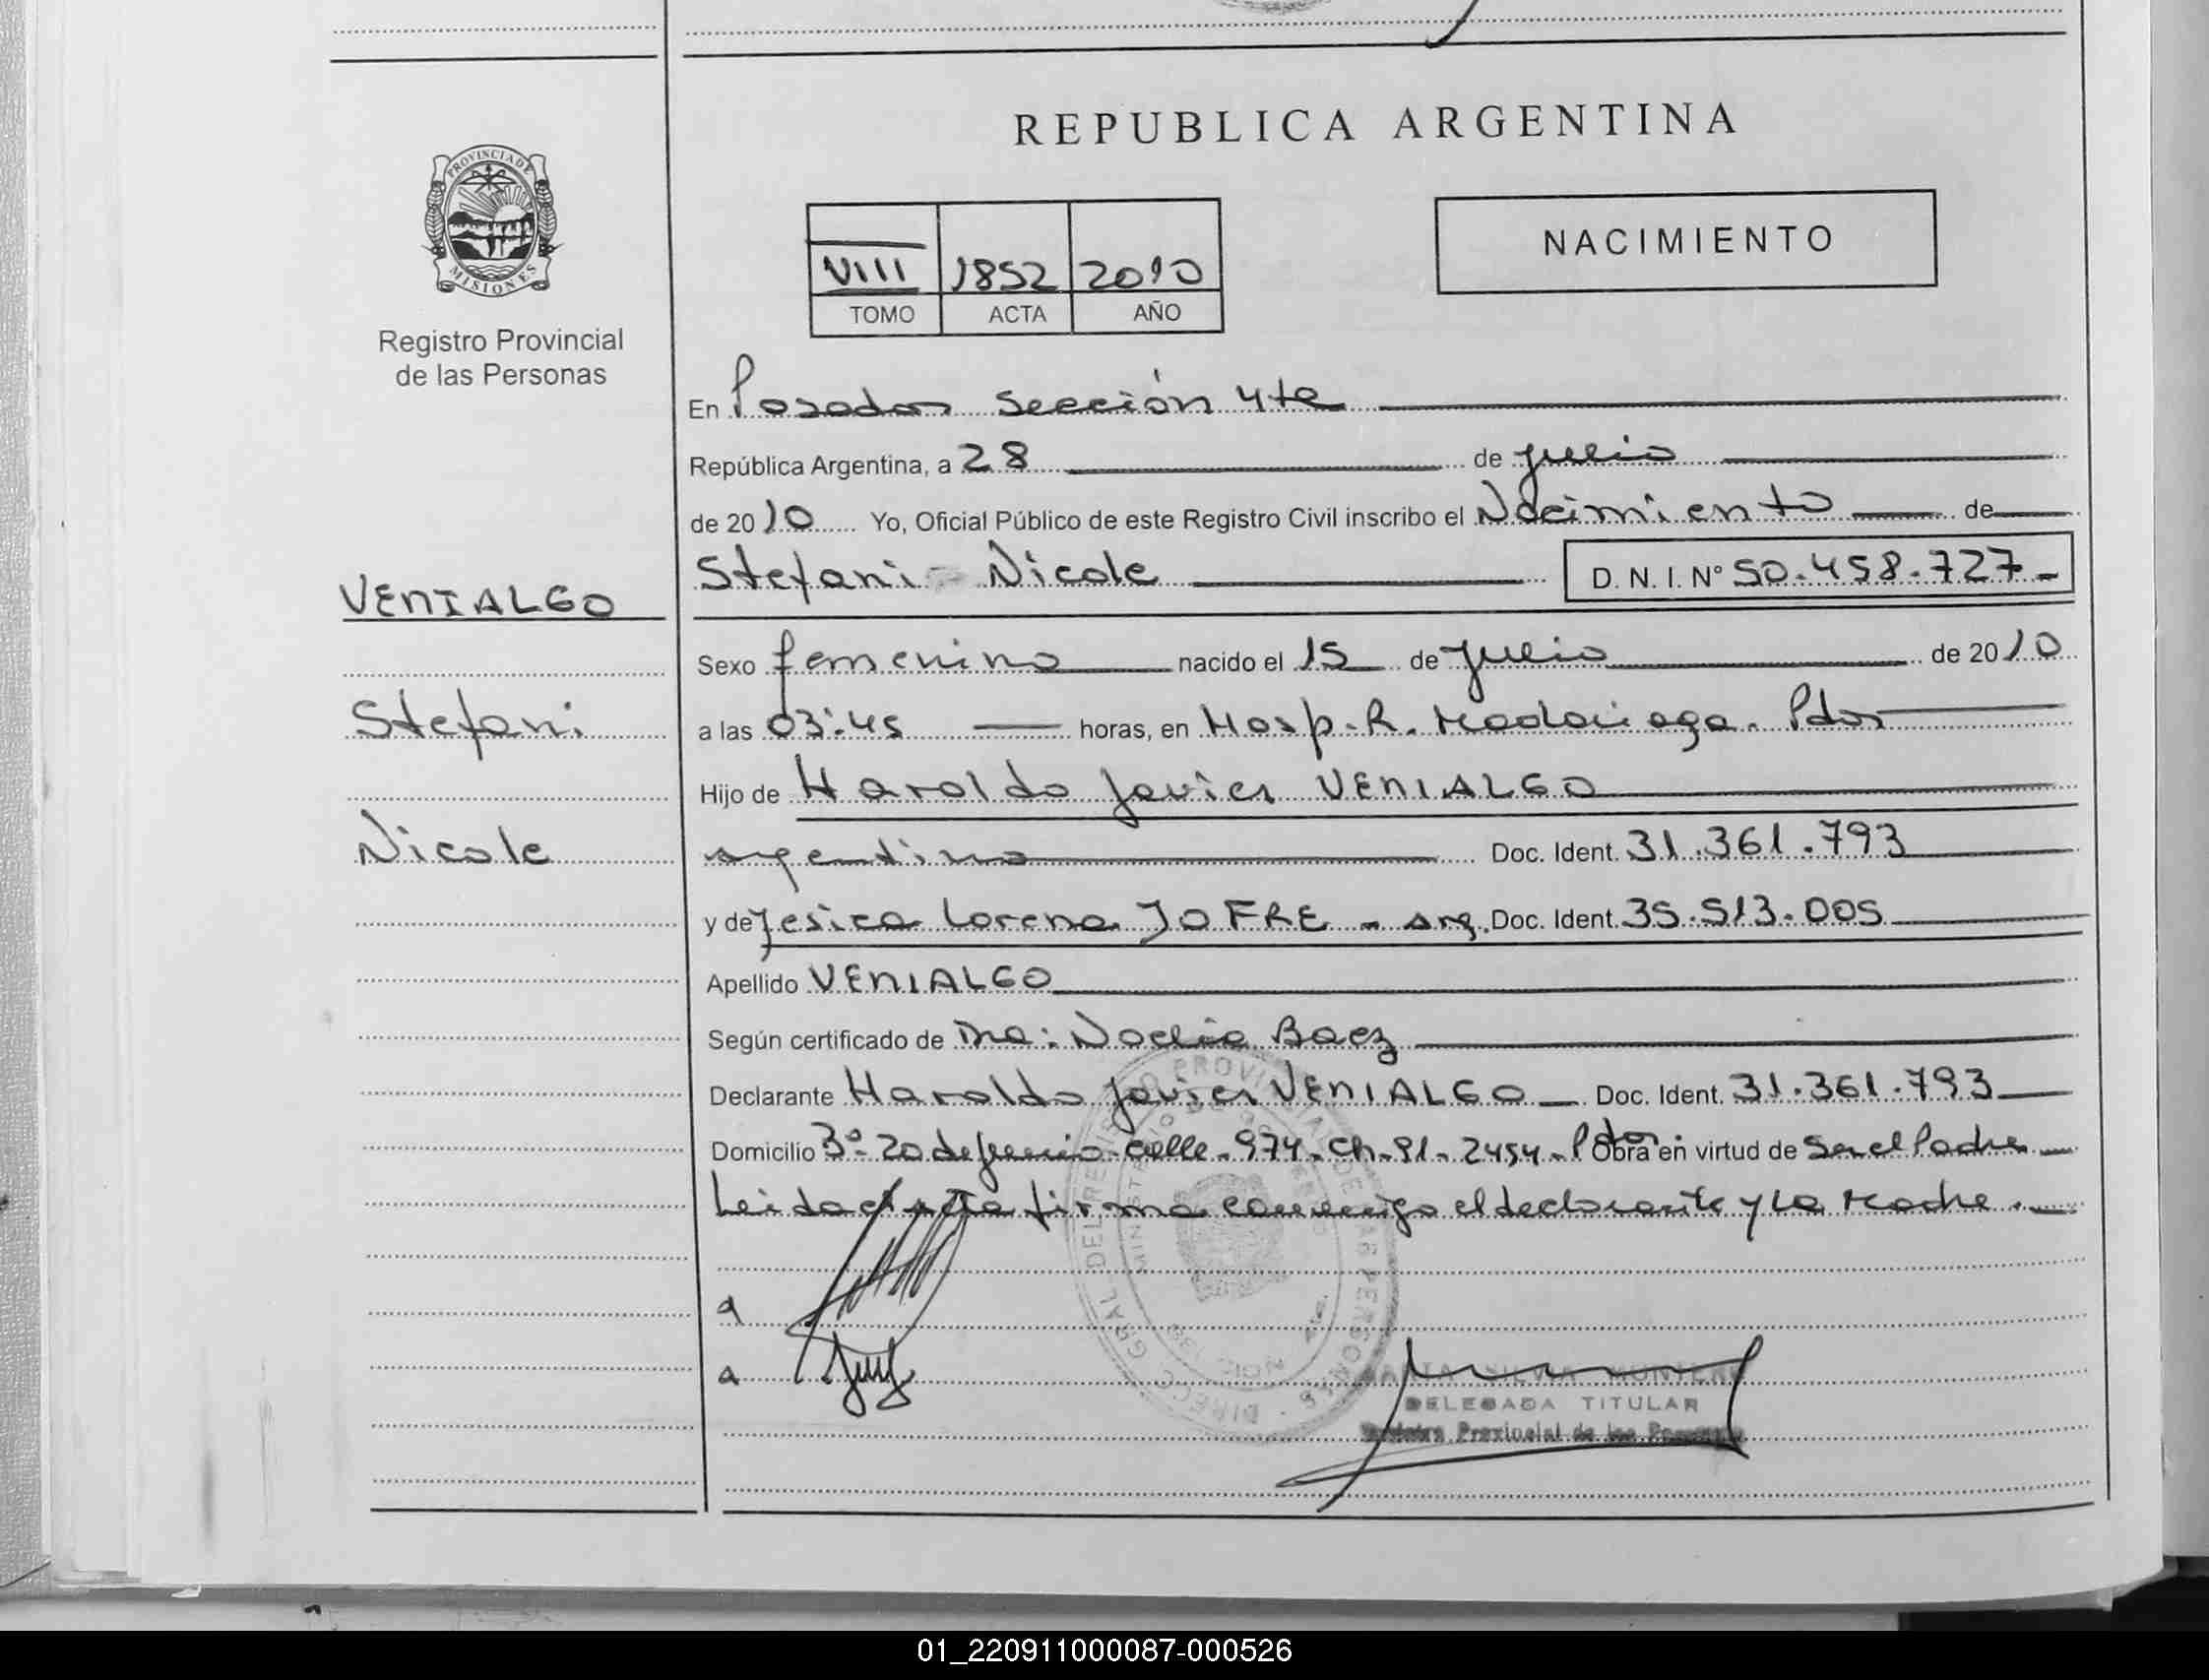 REPUBLICA ARGENTINA
PROVINCIA DE
MISIONES
Registro Provincial
de las Personas
VIII 1852 2010
TOMO ACTA AÑO
NACIMIENTO
En Posadas Sección 4ta
República Argentina, a 28 de julio
de 2010 Yo, Oficial Público de este Registro Civil inscribo el Nacimiento de
Stefani Nicole D. N. I. Nº 50.458.727
VENIALGO
Stefani
Nicole
Sexo femenino nacido el 15 de julio de 2010
a las 03:45 horas, en Hosp. R. Madariaga. Pdas
Hijo de Haroldo Javier VENIALGO
argentino Doc. Ident. 31.361.793
y de Jesica Lorena JOFRE - arg. Doc. Ident. 35.513.005
Apellido VENIALGO
Según certificado de Ma: Noelia Baez
Declarante Haroldo Javier VENIALGO Doc. Ident. 31.361.793
Domicilio 3º- 20 de junio- calle- 974- Ch- 91- 2454- Pdas Obra en virtud de Ser el Padre
Leida el acta firma conmigo el declarante y La Madre.
DELEGADA TITULAR
Registro Provincial de las Personas
01_220911000087-000526